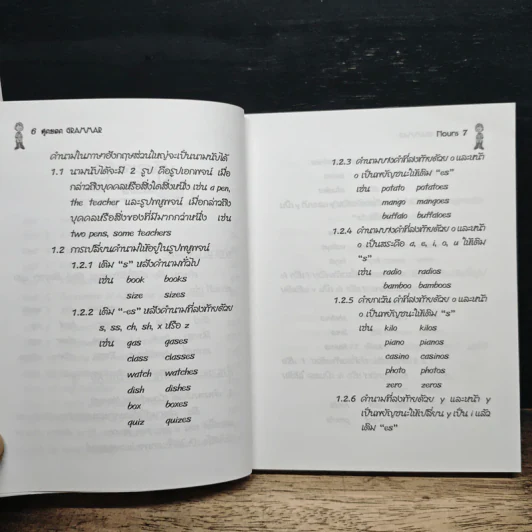 6 สุดยอด GRAMMAR
คำนามในภาษาอังกฤษส่วนใหญ่จะเป็นนามนับได้
1.1 นามนับได้จะมี 2 รูป คือรูปเอกพจน์ เมื่อ
กล่าวถึงบุคคลหรือสิ่งใดสิ่งหนึ่ง เช่น a pen,
the teacher และรูปพหูพจน์ เมื่อกล่าวถึง
บุคคลหรือสิ่งของที่มีมากกว่าหนึ่ง เช่น
two pens, some teachers
1.2 การเปลี่ยนคำนามให้อยู่ในรูปพหูพจน์
1.2.1 เติม "s" หลังคำนามทั่วไป
เช่น book books
size sizes
1.2.2 เติม "-es" หลังคำนามที่ลงท้ายด้วย
s, ss, ch, sh, x หรือ z
เช่น gas gases
class classes
watch watches
dish dishes
box boxes
quiz quizes
Nours 7
1.2.3 คำนามบางคำที่ลงท้ายด้วย o และหน้า
o เป็นพยัญชนะให้เติม "es"
เช่น potato potatoes
mango mangoes
buffalo buffaloes
1.2.4 คำนามบางคำที่ลงท้ายด้วย o และหน้า
o เป็นสระคือ a, e, i, o, u ให้เติม
"s"
เช่น radio radios
bamboo bamboos
1.2.5 คำยกเว้น คำที่ลงท้ายด้วย o และหน้า
o เป็นพยัญชนะให้เติม "s"
เช่น kilo kilos
piano pianos
casino casinos
photo photos
zero zeros
1.2.6 คำนามที่ลงท้ายด้วย y และหน้า y
เป็นพยัญชนะให้เปลี่ยน y เป็น i แล้ว
เติม "es"